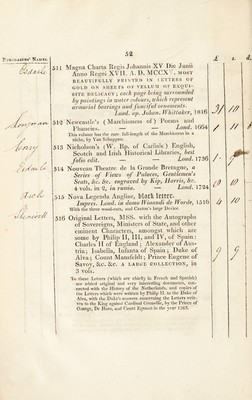 52
PURCHASERS' NAMES.
£ s. d.
511 Magna Charta Regis Johannis XV Die Junii
Anno Regni XVII. A. D. MCCXV. MOST
BEAUTIFULLY PRINTED IN LETTERS OF
GOLD ON SHEETS OF VELLUM OF EXQUI-
SITE DELICACY; each page being surrounded
by paintings in water colours, which represent
armorial bearings and fanciful ornaments.
Lond. ap. Johan. Whittaker, 1816
31 10
512 Newcastle's (Marchioness of) Poems and
Phancies. — Lond. 1664
1 11
This volume has the rare full-length of the Marchioness in a
niche, by Van Schuppen.
513 Nicholson's (W. Bp. of Carlisle) English,
Scotch and Irish Historical Libraries, best
folio edit. — Lond. 1736
514 Nouveau Theatre de la Grande Bretagne, a
Series of Views of Palaces, Gentlemen's
Seats, &c. &c. engraved by Kip, Harris, &c.
4 vols. in 2, in russia. — Lond. 1724
10
515 Nova Legenda Angliae, black letter.
Impres. Lond. in domo Winandi de Worde, 1516
4 10
With the three wood-cuts, and Caxton's large Device.
516 Original Letters, MSS. with the Autographs
of Sovereigns, Ministers of State, and other
eminent Characters, amongst which are
some by Philip II, III, and IV, of Spain;
Charles II of England; Alexander of Aus-
tria; Isabella, Infanta of Spain; Duke of
Alva; Count Mansfeldt; Prince Eugene of
Savoy, &c. &c. A LARGE COLLECTION, in
3 vols.
To these Letters (which are chiefly in French and Spanish)
are added original and very interesting documents, con-
nected with the History of the Netherlands, and copies of
the Letters which were written by Philip II. to the Duke of
Alva, with the Duke's answers concerning the Letters writ-
ten to the King against Cardinal Granvelle, by the Prince of
Orange, De Horn, and Count Egmont in the year 1563.